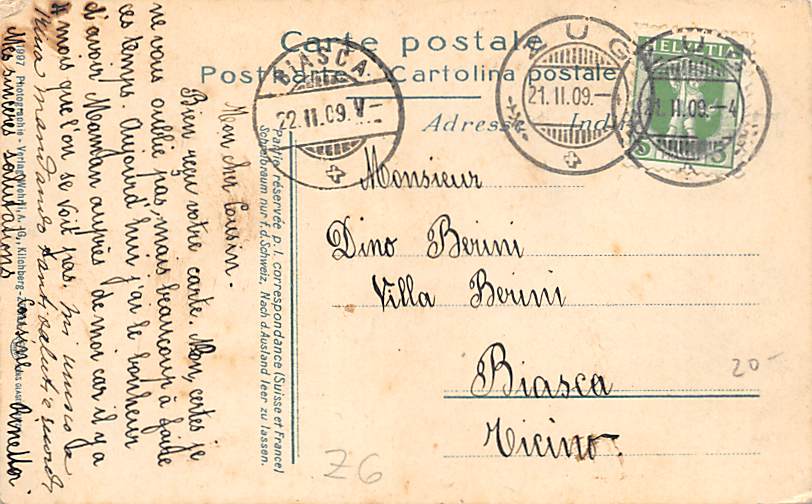 Carte postale
Postkarte Cartolina postale
Adresse
ZUG
21.II.09.-4
ZUG
21.II.09.-4
HELVETIA
5 5
BIASCA
22.II.09.V-
Monsieur
Dino Berini
Villa Berini
Biasca
Ticino.
20-
Z6
Partie réservée p. l. correspondance (Suisse et France)
Schreibraum nur f. d. Schweiz, Nach d. Ausland leer zu lassen.
Mon cher Cousin.
Bien reçu votre carte. Non, certes je
ne vous oublie pas, mais beaucoup à faire
ces temps. Aujourd'hui j'ai le bonheur
d'avoir Maman auprès de moi car il y a
4 mois que l'on se voit pas. mi unisco a
mandando tanti saluti e
Mes sincères salutations
Cousine
Photographie - Verlag Wehrli A.G., Kilchberg-